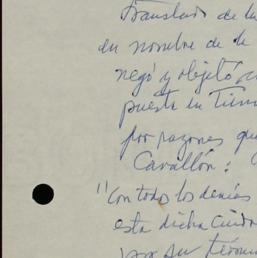 Translado de la
en nombre de la
negó y objetó
puesta en
por razones que
Cavallón:
"Con todo los demás
esta dicha ciudad
por su